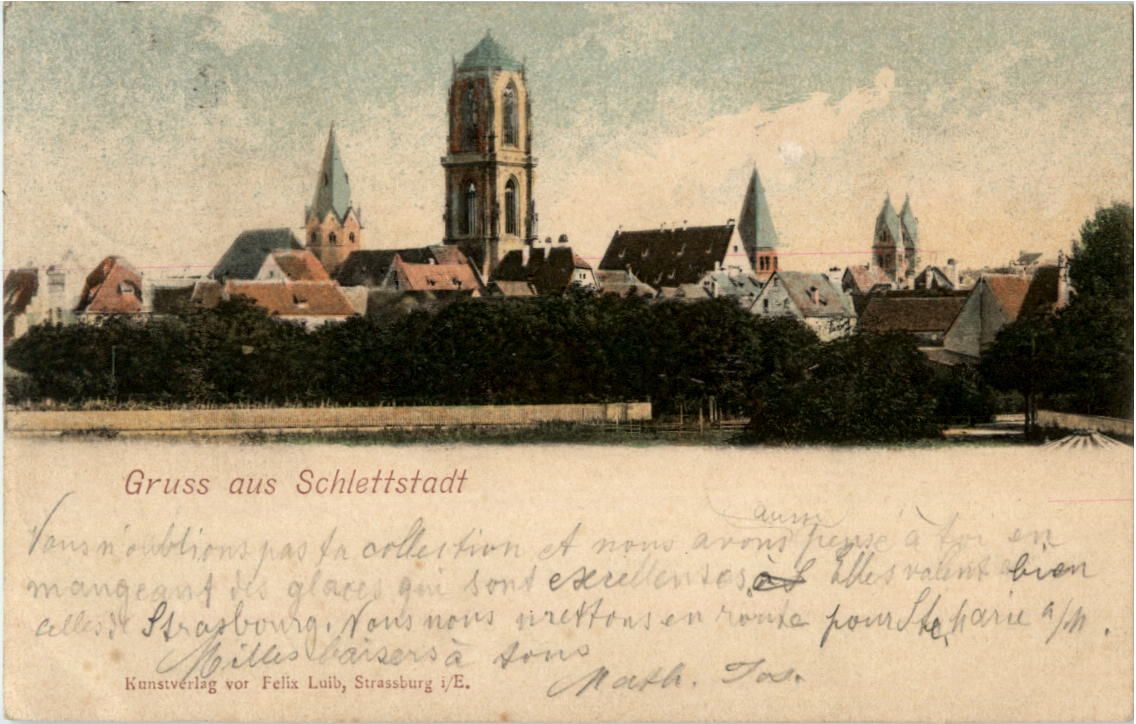 Gruss aus Schlettstadt
aussi
Nous n'oublions pas ta collection et nous avons pensé à toi en
mangeant des glaces qui sont excellentes, Elles valent bien
celles de Strasbourg. Nous nous mettons en route pour Ste Marie a/M.
Milles baisers à tous
Math. Jos.
Kunstverlag vor Felix Luib, Strassburg i/E.